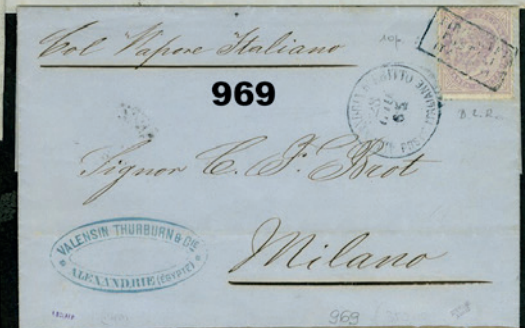 Col Vapore Italiano
969
Signor C. F. Brot
Milano
VALENSIN THURBURN & CIE
ALEXANDRIE (EGYPTE)
969